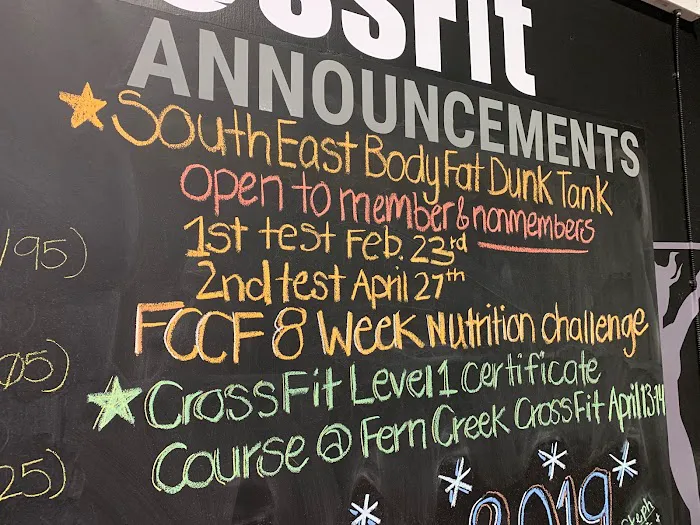 ossFit
ANNOUNCEMENTS
SouthEast BodyFat Dunk Tank
open to member & nonmembers
1st test Feb. 23rd
2nd test April 27th
FCCF 8 Week Nutrition challenge
CrossFit Level 1 certificate
Course @ Fern Creek CrossFit April 13-14
2019
/95)
05)
25)